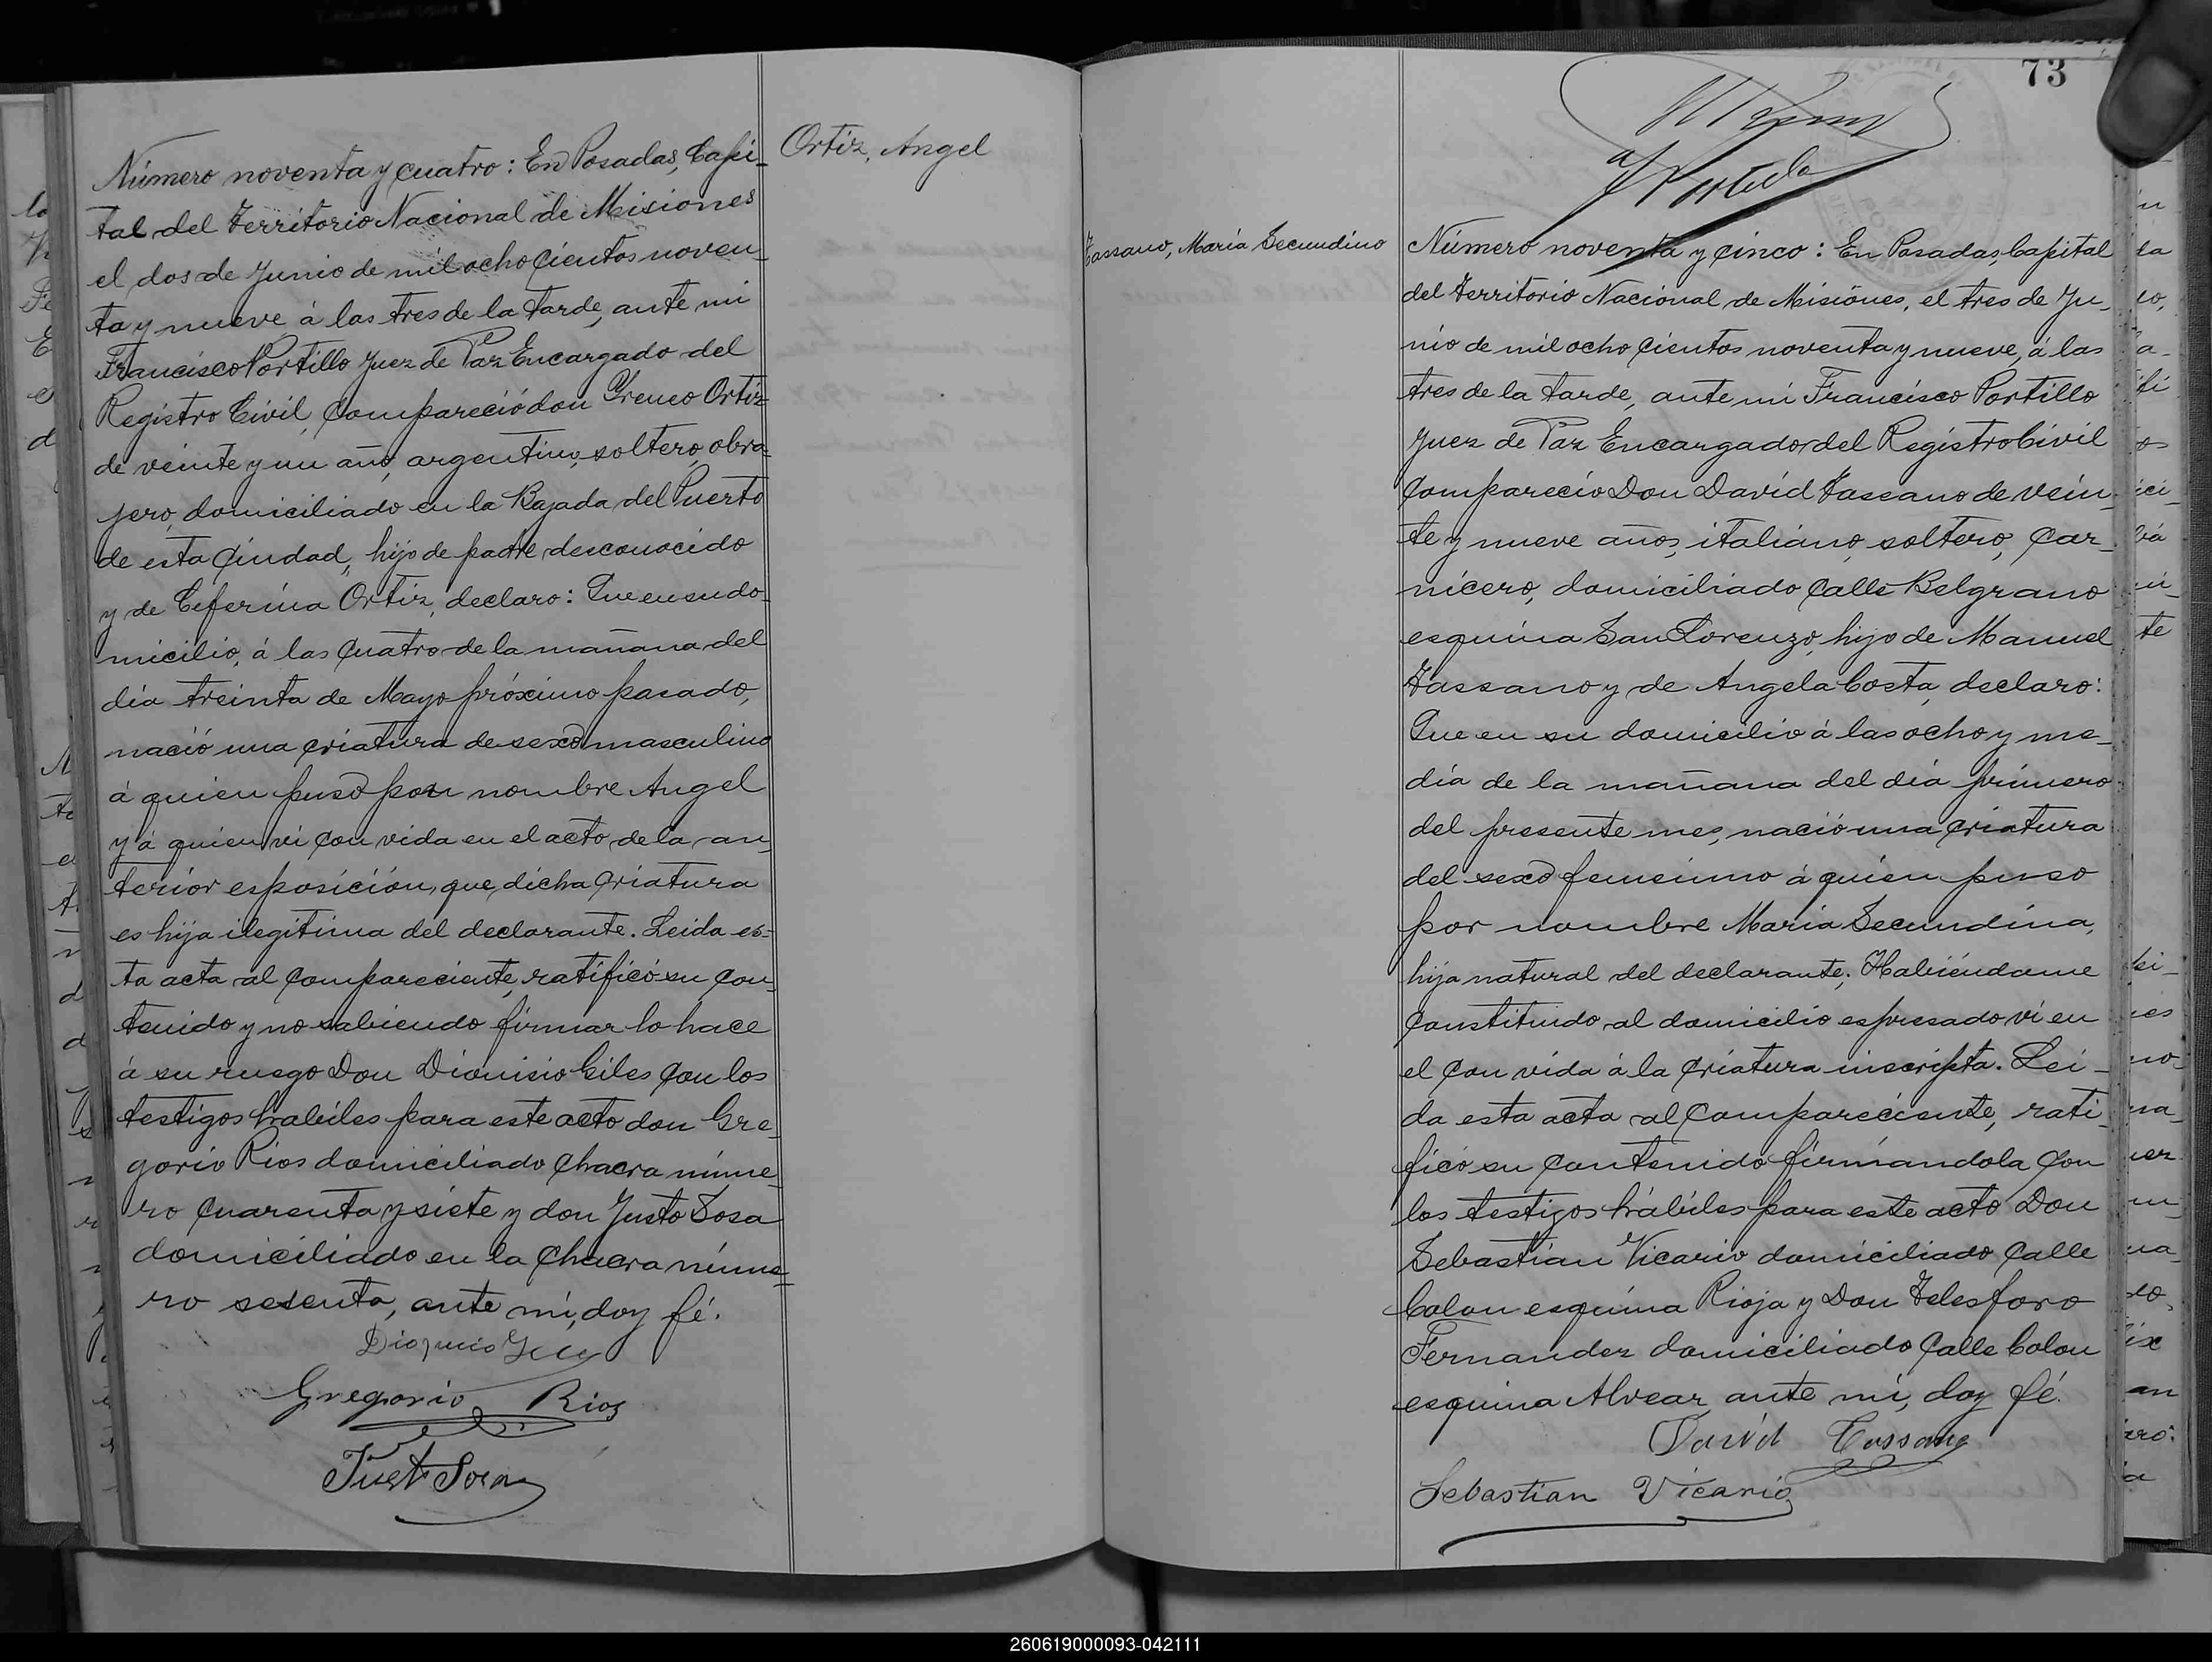 Número noventa y cuatro: En Posadas, Capi-
tal del Territorio Nacional de Misiones
el dos de Junio de mil ochocientos noven-
ta y nueve á las tres de la tarde, ante mi
Francisco Portillo Juez de Paz Encargado del
Registro Civil, compareció don Ireneo Ortiz
de veinte y un año, argentino, soltero, obra-
jero, domiciliado en la Bajada del Puerto
de esta ciudad, hijo de padre desconocido
y de Ceferina Ortiz, declaro: Que en su do-
micilio, á las cuatro de la mañana del
día treinta de Mayo próximo pasado,
nació una criatura de sexo masculino
á quien puso por nombre Angel
y á quien vi con vida en el acto de la an-
terior esposición, que dicha criatura
es hija ilegitima del declarante. Leida es-
ta acta al compareciente, ratificó su con-
tenido y no sabiendo firmar lo hace
á su ruego Don Dionisio Giles con los
testigos habiles para este acto don Gre-
gorio Rios domiciliado chacra núme-
ro cuarenta y siete y don Justo Sosa
domiciliado en la chacra núme-
ro sesenta, ante mi, doy fé.
Gregorio Rios
Just Sosa
Ortiz, Angel
73
Tassano, María Secundino
Número noventa y cinco: En Posadas, Capital
del Territorio Nacional de Misiones, el tres de Ju-
nio de mil ochocientos noventa y nueve, á las
tres de la tarde, ante mi Francisco Portillo
Juez de Paz Encargado del Registro Civil
compareció Don David Tassano de vein-
te y nueve años, italiano, soltero, car-
nicero, domiciliado calle Belgrano
esquina San Lorenzo, hijo de Manuel
Tassano y de Angela Costa, declaro:
Que en su domicilio á las ocho y me-
dia de la mañana del día primero
del presente mes, nació una criatura
del sexo femenino á quien puso
por nombre María Secundina,
hija natural del declarante; Habiéndome
constituido al domicilio espresado vi en
el con vida á la criatura inscripta. Lei-
da esta acta al compareciente, rati-
ficó su contenido firmándola con
los testigos hábiles para este acto Don
Sebastian Vicario domiciliado calle
Colon esquina Rioja y Don Telesforo
Fernandez domiciliado calle Colon
esquina Alvear, ante mi, doy fé.
David Tassano
Sebastian Vicario
260619000093-042111